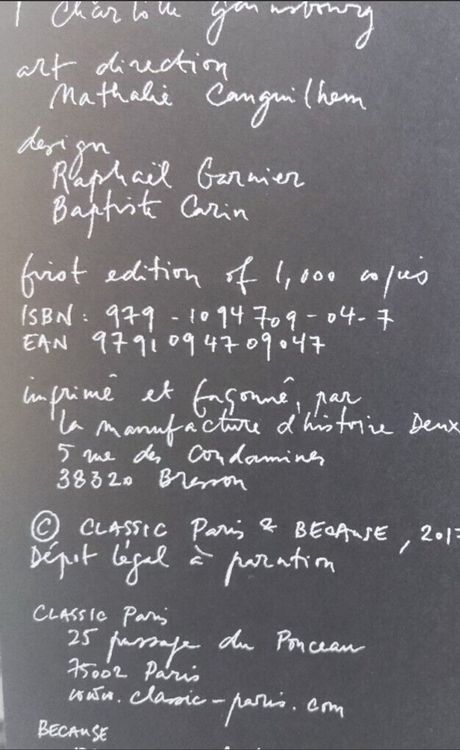 Charlotte Gainsbourg
art direction
Nathalie Canguilhem
design
Raphaël Garnier
Baptiste Carin
first edition of 1,000 copies
ISBN : 979 - 1094709 - 04 - 7
EAN 9791094709047
imprimé et façonné, par
la manufacture d'histoire Deux
5 rue des Condamines
38320 Bresson
© CLASSIC Paris & BECAUSE, 201
Dépôt légal à parution
CLASSIC Paris
25 passage du Ponceau
75002 Paris
www.classic-paris.com
BECAUSE